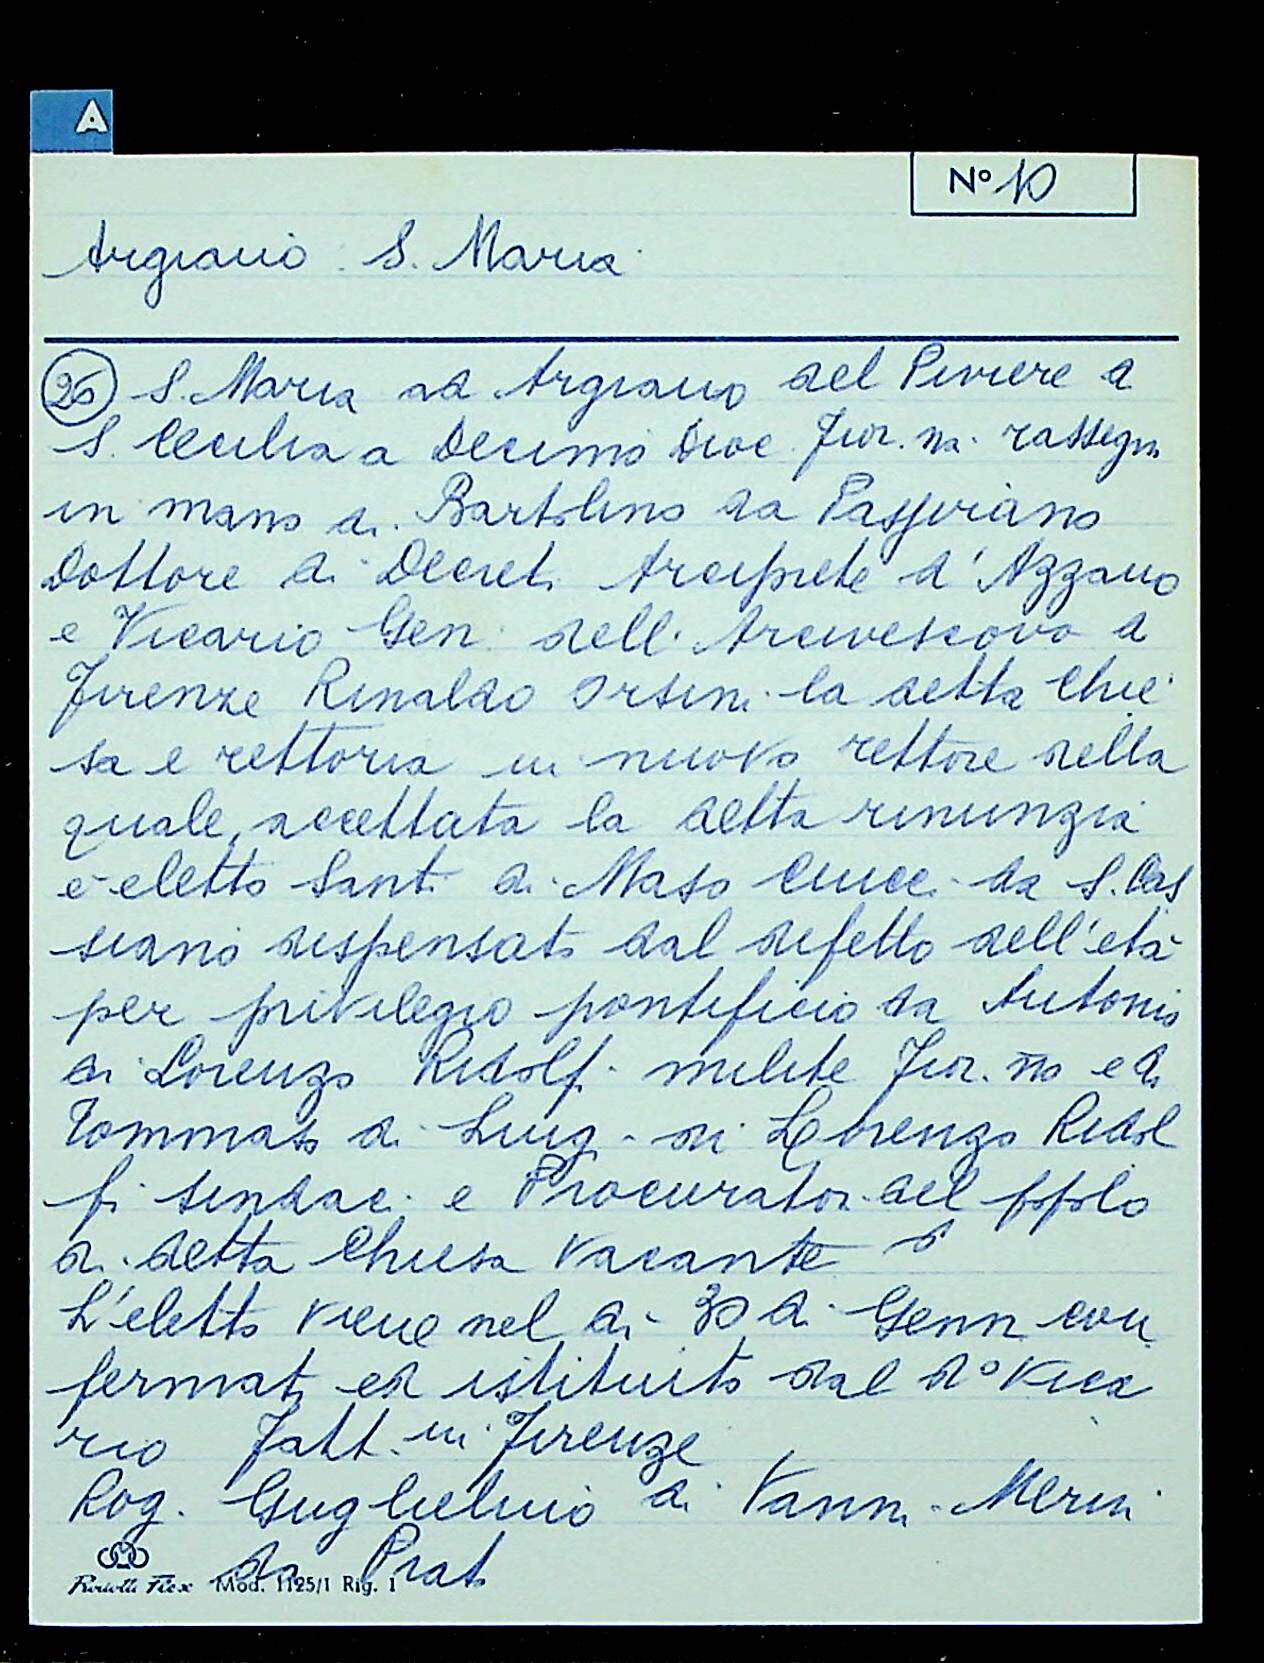 A
N° 10
Argiano S. Maria
26 S. Maria ad Argiano del Piviere di
S. Cecilia a Decimo Dioc. Fior.na rassegn
in mano di Bartolino da
Dottore di Decreti Arciprete d'Azzano
e Vicario Gen. dell'Arcivescovo di
Firenze Rinaldo Orsini la detta Chie
sa e rettoria in nuovo rettore della
quale, accettata la detta rinunzia
è eletto Santi di Maso Ciucci da S. Cas
siano dispensato dal difetto dell'età
per privilegio pontificio da Antonio
di Lorenzo Ridolfi milite Fior.no e di
Tommaso di Luigi di Lorenzo Ridol
fi sindaci e Procuratori del popolo
di detta Chiesa vacante
L'eletto viene nel dì 30 di Genn con
fermato ed istituito dal d° Vica
rio Fatt. in Firenze
Rog. Guglielmo di Vanni Merini
da Prato
Mod. 1125/1 Rig. 1